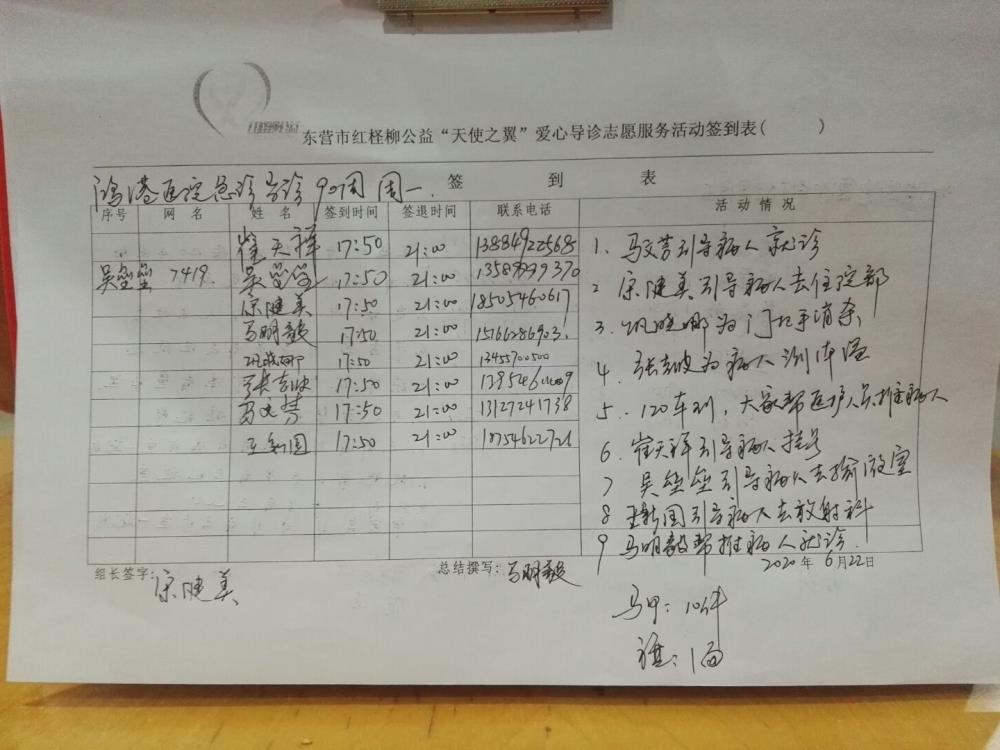 东营市红柽柳公益“天使之翼”爱心导诊志愿服务活动签到表( )
鸿港医院急诊导诊90周 周一.
签 到 表
序号 网 名 姓 名 签到时间 签退时间 联系电话 活 动 情 况
崔天祥 17:50 21:00 13884922568
吴垒垒 7419. 吴垒垒 17:50 21:00 13589999370
宋健美 17:50 21:00 18505460617
马明毅 17:50 21:00 15166286903.
巩晓娜 17:50 21:00 13455700500
张志波 17:50 21:00
马文芳 17:50 21:00 13127241738
王新国 17:50 21:00 18754622721
1. 马文芳引导病人就诊
2 宋健美引导病人去住院部
3. 巩晓娜为门把手消杀
4. 张志波为病人测体温
5. 120车到，大家帮医护人员推病人
6. 崔天祥引导病人挂号
7 吴垒垒引导病人去输液室
8 王新国引导病人去放射科
9 马明毅帮推病人就诊.
2020年 6月22日
组长签字: 宋健美
总结撰写: 马明毅
马甲: 10件
旗: 1面